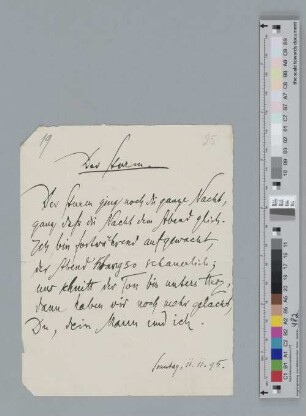 19
25
Der Sturm
Der Sturm ging noch die ganze Nacht,
ganz daß die Nacht dem Abend glich.
Ich bin fortwährend aufgewacht,
der Abend so schauerlich;
nur der Ton bis unters
dann haben wir noch mehr gelacht,
Du, dein Mann und ich.
Sonntag, 11.11.95.